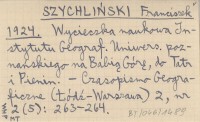 SZYCHLIŃSKI Franciszek
1924. Wycieczka naukowa In-
stytutu Geograf. Univers. poz-
nańskiego na Babią Górę, do Tatr
i Pienin. - Czasopismo Geogra-
ficzne (Łódź-Warszawa) 2, nr
2 (5): 263-264.
MT